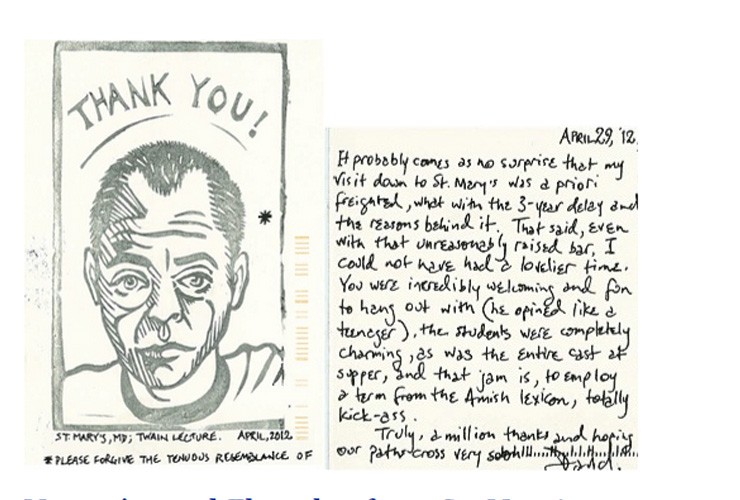 THANK YOU!
*
ST. MARY'S, MD; TWAIN LECTURE. APRIL, 2012
*PLEASE FORGIVE THE TENUOUS RESEMBLANCE OF
APRIL 29, '12
It probably comes as no surprise that my
visit down to St. Mary's was a priori
freighted, what with the 3-year delay and
the reasons behind it. That said, even
with that unreasonably raised bar, I
could not have had a lovelier time.
You were incredibly welcoming and fun
to hang out with (he opined like a
teenager), the students were completely
charming, as was the entire cast at
supper, and that jam is, to employ
a term from the Amish lexicon, totally
kick-ass.
Truly, a million thanks and hoping
our paths cross very soon!